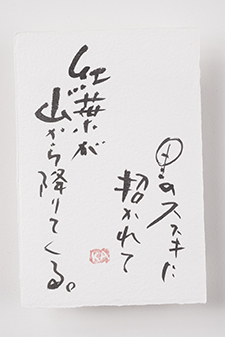 里のススキに
招かれて
紅葉が
山から降りてくる。
KA